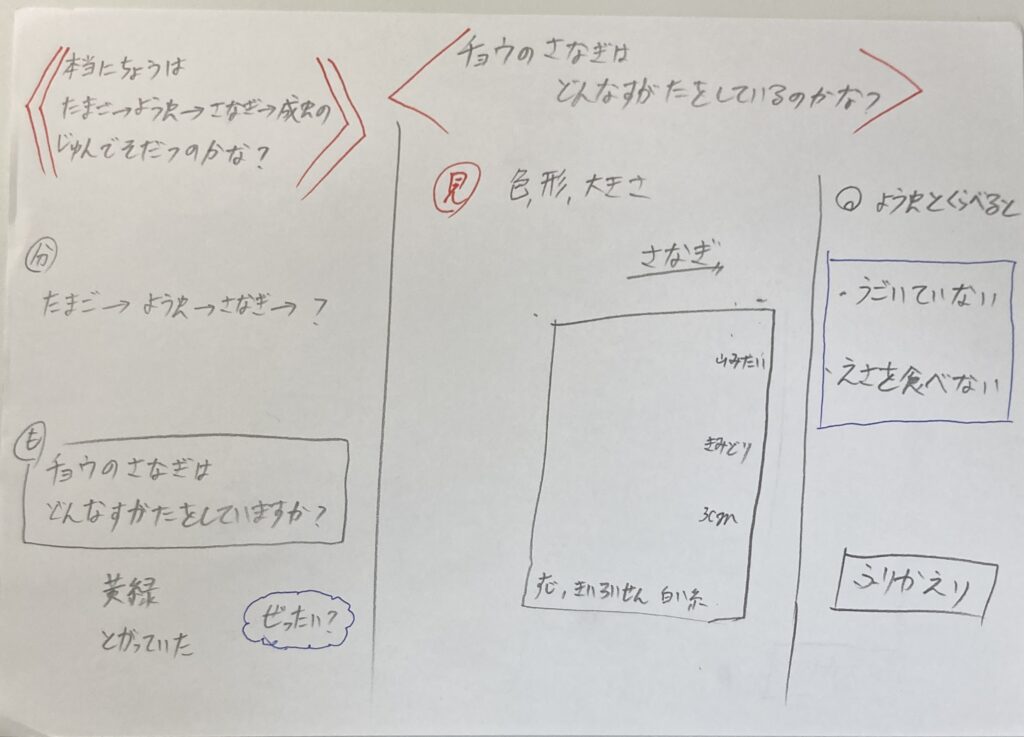 本当にちょうは
たまご→よう虫→さなぎ→成虫の
じゅんでそだつのかな？
分
たまご→よう虫→さなぎ→？
も
チョウのさなぎは
どんなすがたをしていますか？
黄緑
とがっていた
ぜったい？
チョウのさなぎは
どんなすがたをしているのかな？
見 色,形,大きさ
さなぎ
山みたい
きみどり
3cm
すじ,きいろいせん 白い糸
よう虫とくらべると
・うごいていない
・えさを食べない
ふりかえり